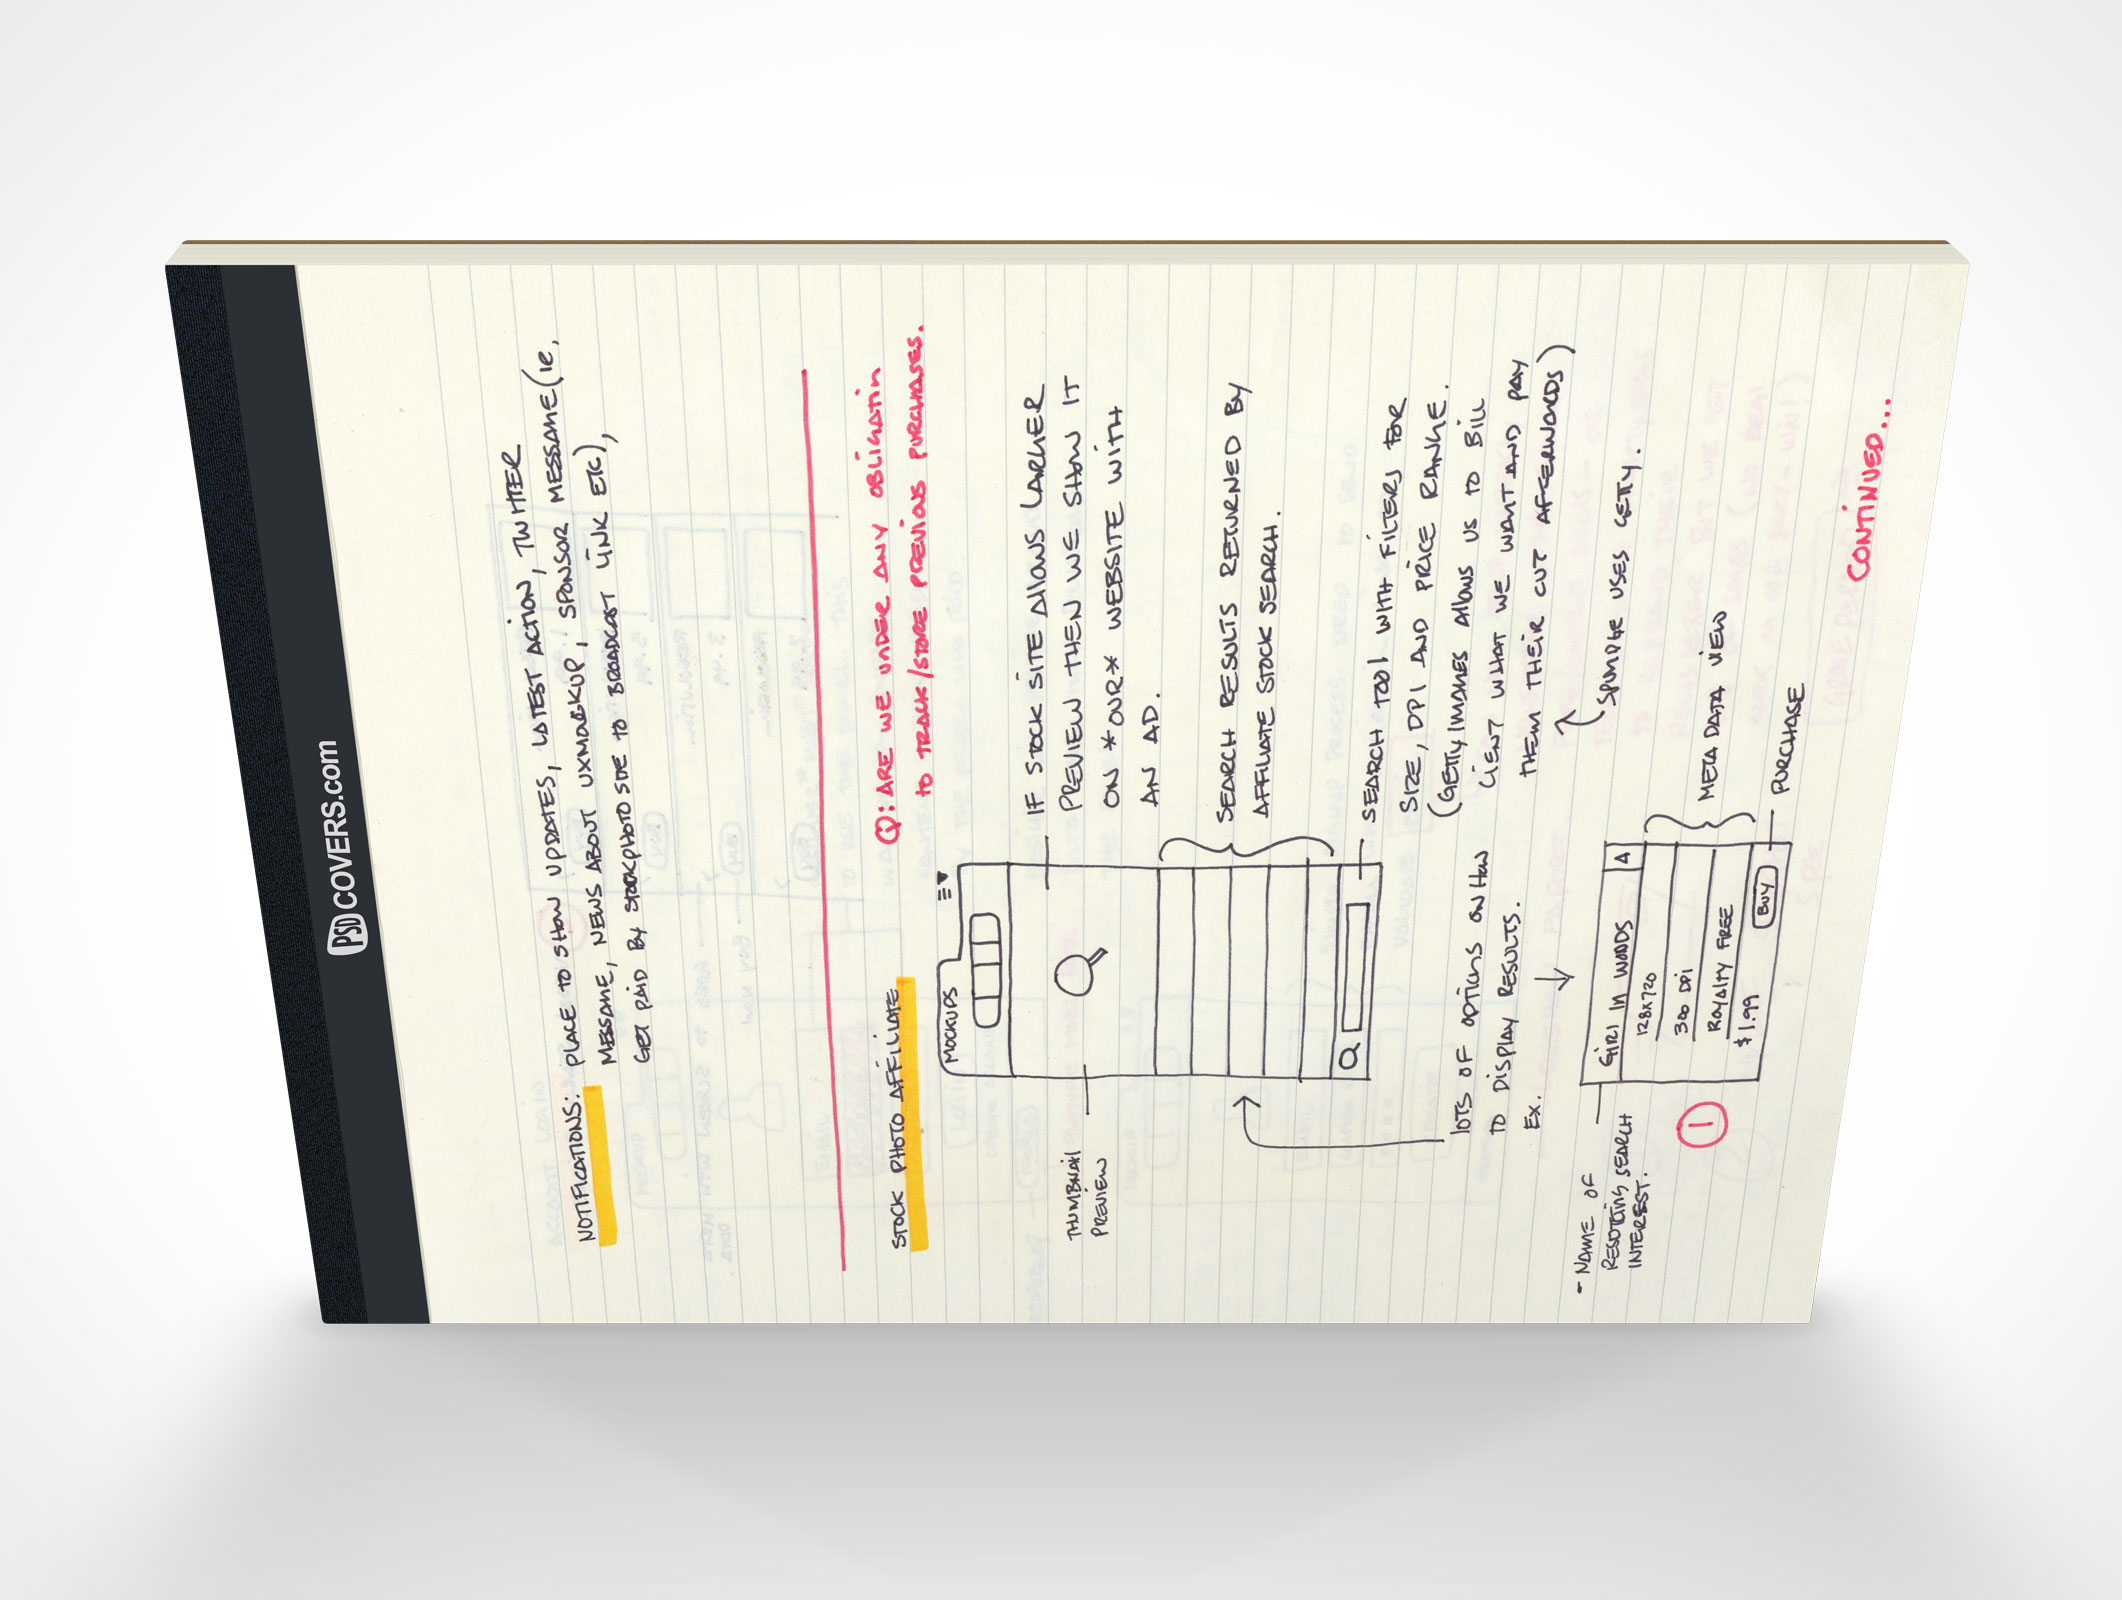 PSDCOVERS.com
NOTIFICATIONS: PLACE TO SHOW UPDATES, LATEST ACTION, TWITTER
MESSAGE, NEWS ABOUT UXMOCKUP, SPONSOR MESSAGE (IE,
GET PAID BY STOCKPHOTO SITE TO BROADCAST LINK ETC),
Q: ARE WE UNDER ANY OBLIGATIN
TO TRACK/STORE PREVIOUS PURCHASES.
STOCK PHOTO AFFILIATE
MOCKUPS
THUMBNAIL
PREVIEW
IF STOCK SITE ALLOWS LARGER
PREVIEW THEN WE SHOW IT
ON *OUR* WEBSITE WITH
AN AD.
SEARCH RESULTS RETURNED BY
AFFILIATE STOCK SEARCH.
SEARCH TOOL WITH FILTERS FOR
SIZE, DPI AND PRICE RANGE.
(GETTYIMAGES ALLOWS US TO BILL
CLIENT WHAT WE WANT AND PAY
THEM THEIR CUT AFTERWORDS)
SPUMPTE USES GETTY.
LOTS OF OPTIONS ON HOW
TO DISPLAY RESULTS.
EX.
- NAME OF
SEARCH
INTEREST.
1
GIRL IN WOODS
128X720
300 DPI
ROYALTY FREE
$1.99
BUY
META DATA VIEW
PURCHASE
CONTINUED...